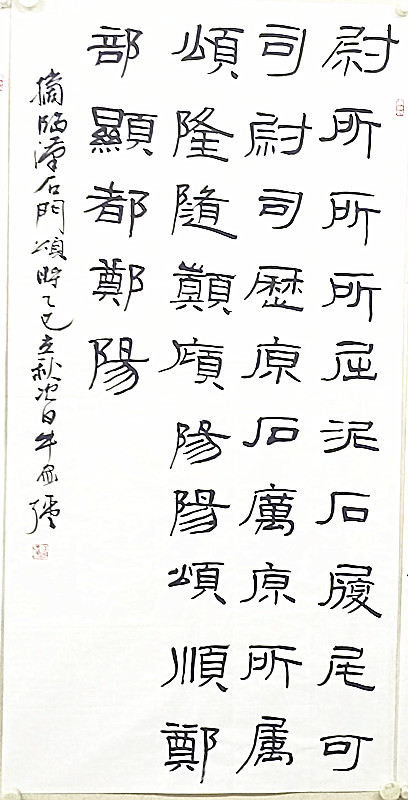 尉所所所屈泥石履尾可
司尉司歷原石厲原所属
頌隆隨顛傾陽陽頌順鄭
部顯都鄭陽
摘臨漢石門頌時乙巳立秋次日牛